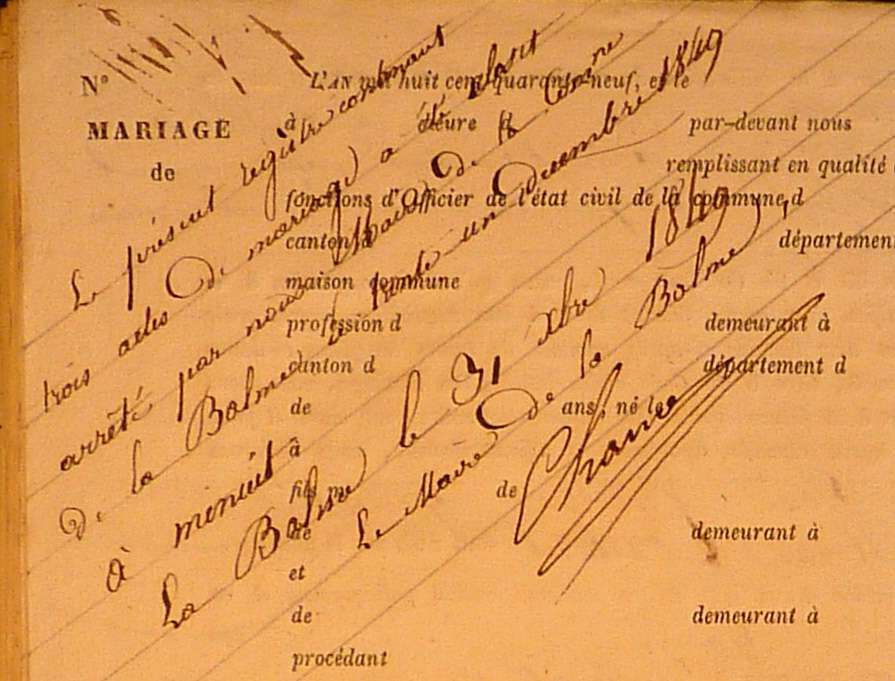 N.°
MARIAGE
de
L'AN mil huit cent quarante-neuf, et le
à heure d par-devant nous
remplissant en qualité
fonctions d'Officier de l'état civil de la commune d
canton d département
maison commune
profession d demeurant à
canton d département d
de ans, né le
à
fils de
de demeurant à
et
de demeurant à
procédant
Le présent registre contenant
trois actes de mariage a été clos et
arrêté par nous Maire de la Comune
de la Balme le trente un décembre 1849
à minuit
La Balme le 31 Xbre 1849
Le Maire de la Balme,